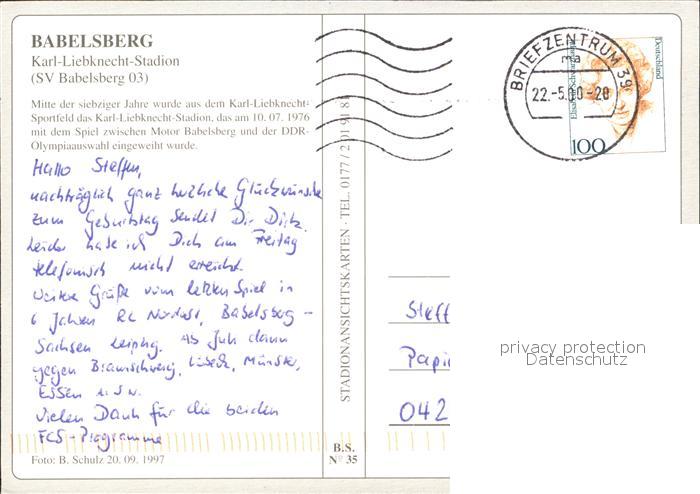 BABELSBERG
Karl-Liebknecht-Stadion
(SV Babelsberg 03)
Mitte der siebziger Jahre wurde aus dem Karl-Liebknecht-
Sportfeld das Karl-Liebknecht-Stadion, das am 10. 07. 1976
mit dem Spiel zwischen Motor Babelsberg und der DDR-
Olympiaauswahl eingeweiht wurde.
Hallo Steffen,
nachträglich ganz herzliche Glückwünsche
zum Geburtstag sendet Dir Dirk.
Leider habe ich Dich am Freitag
telefonisch nicht erreicht.
Weitere Grüße vom letzten Spiel in
6 Jahren RL Nordost, Babelsberg -
Sachsen Leipzig. Ab Juli dann
gegen Braunschweig, Lübeck, Münster,
Essen u.s.w.
Vielen Dank für die beiden
FCS-Programme
Foto: B. Schulz 20. 09. 1997
STADIONANSICHTSKARTEN · TEL. 0177 / 2 01 91 81
B.S.
N° 35
BRIEFZENTRUM 39
ma
22.-5.00-20
Deutschland
100
Steff
Papi
042
privacy protection
Datenschutz